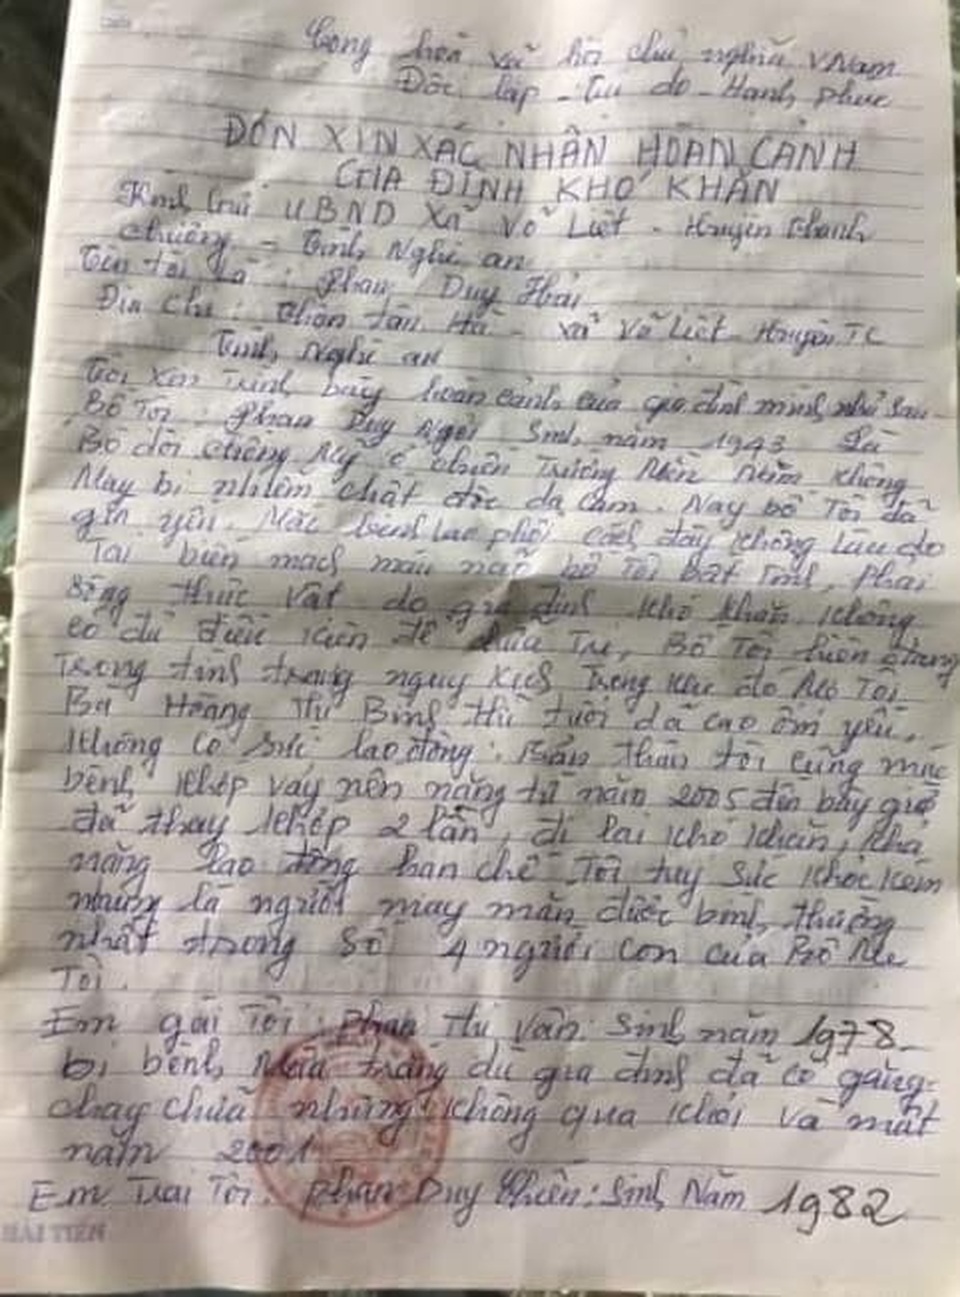 Cộng hòa xã hội chủ nghĩa VNam
Độc lập - Tự do - Hạnh phúc
ĐƠN XIN XÁC NHẬN HOÀN CẢNH
GIA ĐÌNH KHÓ KHĂN
Kính gửi UBND Xã Võ Liệt - Huyện Thanh
Chương - Tỉnh Nghệ an
Tên tôi là: Phan Duy Thái
Địa chỉ: Thôn Tân Hà - xã Võ Liệt - Huyện TC
Tỉnh Nghệ an
Tôi xin trình bày hoàn cảnh của gia đình mình như sau
Bố Tôi: Phan Duy Ngôi Sinh năm 1943 Là
Bộ đội chống Mỹ ở chiến Trường Miền Nam không
May bị nhiễm chất độc da cam. Nay bố Tôi đã
già yếu. Mắc bệnh lao phổi cách đây không lâu do
Tai biến mạch máu não bố Tôi bất tỉnh, phải
sống thực vật do gia đình khó khăn không
có đủ điều kiện để chữa Trị, Bố Tôi hiện đang
Trong tình trạng nguy kịch Trong khi đó Mẹ Tôi
Bà Hoàng Thị Bình Thì tuổi đã cao ốm yếu,
không có sức lao động. Bản thân tôi cũng mắc
bệnh khớp vảy nến nặng từ năm 2005 đến bây giờ
đã thay khớp 2 lần, đi lại khó khăn, khả
năng lao động hạn chế Tôi tuy sức khỏe kém
nhưng là người may mắn được bình thường
nhất trong số 4 người con của Bố Mẹ
Tôi.
Em gái Tôi: Phan Thị Vân Sinh năm 1978
bị bệnh Máu trắng dù gia đình đã cố gắng
chạy chữa nhưng không qua khỏi và mất
năm 2001
Em Trai Tôi: Phan Duy Thiên: Sinh Năm 1982
HẢI TIẾN